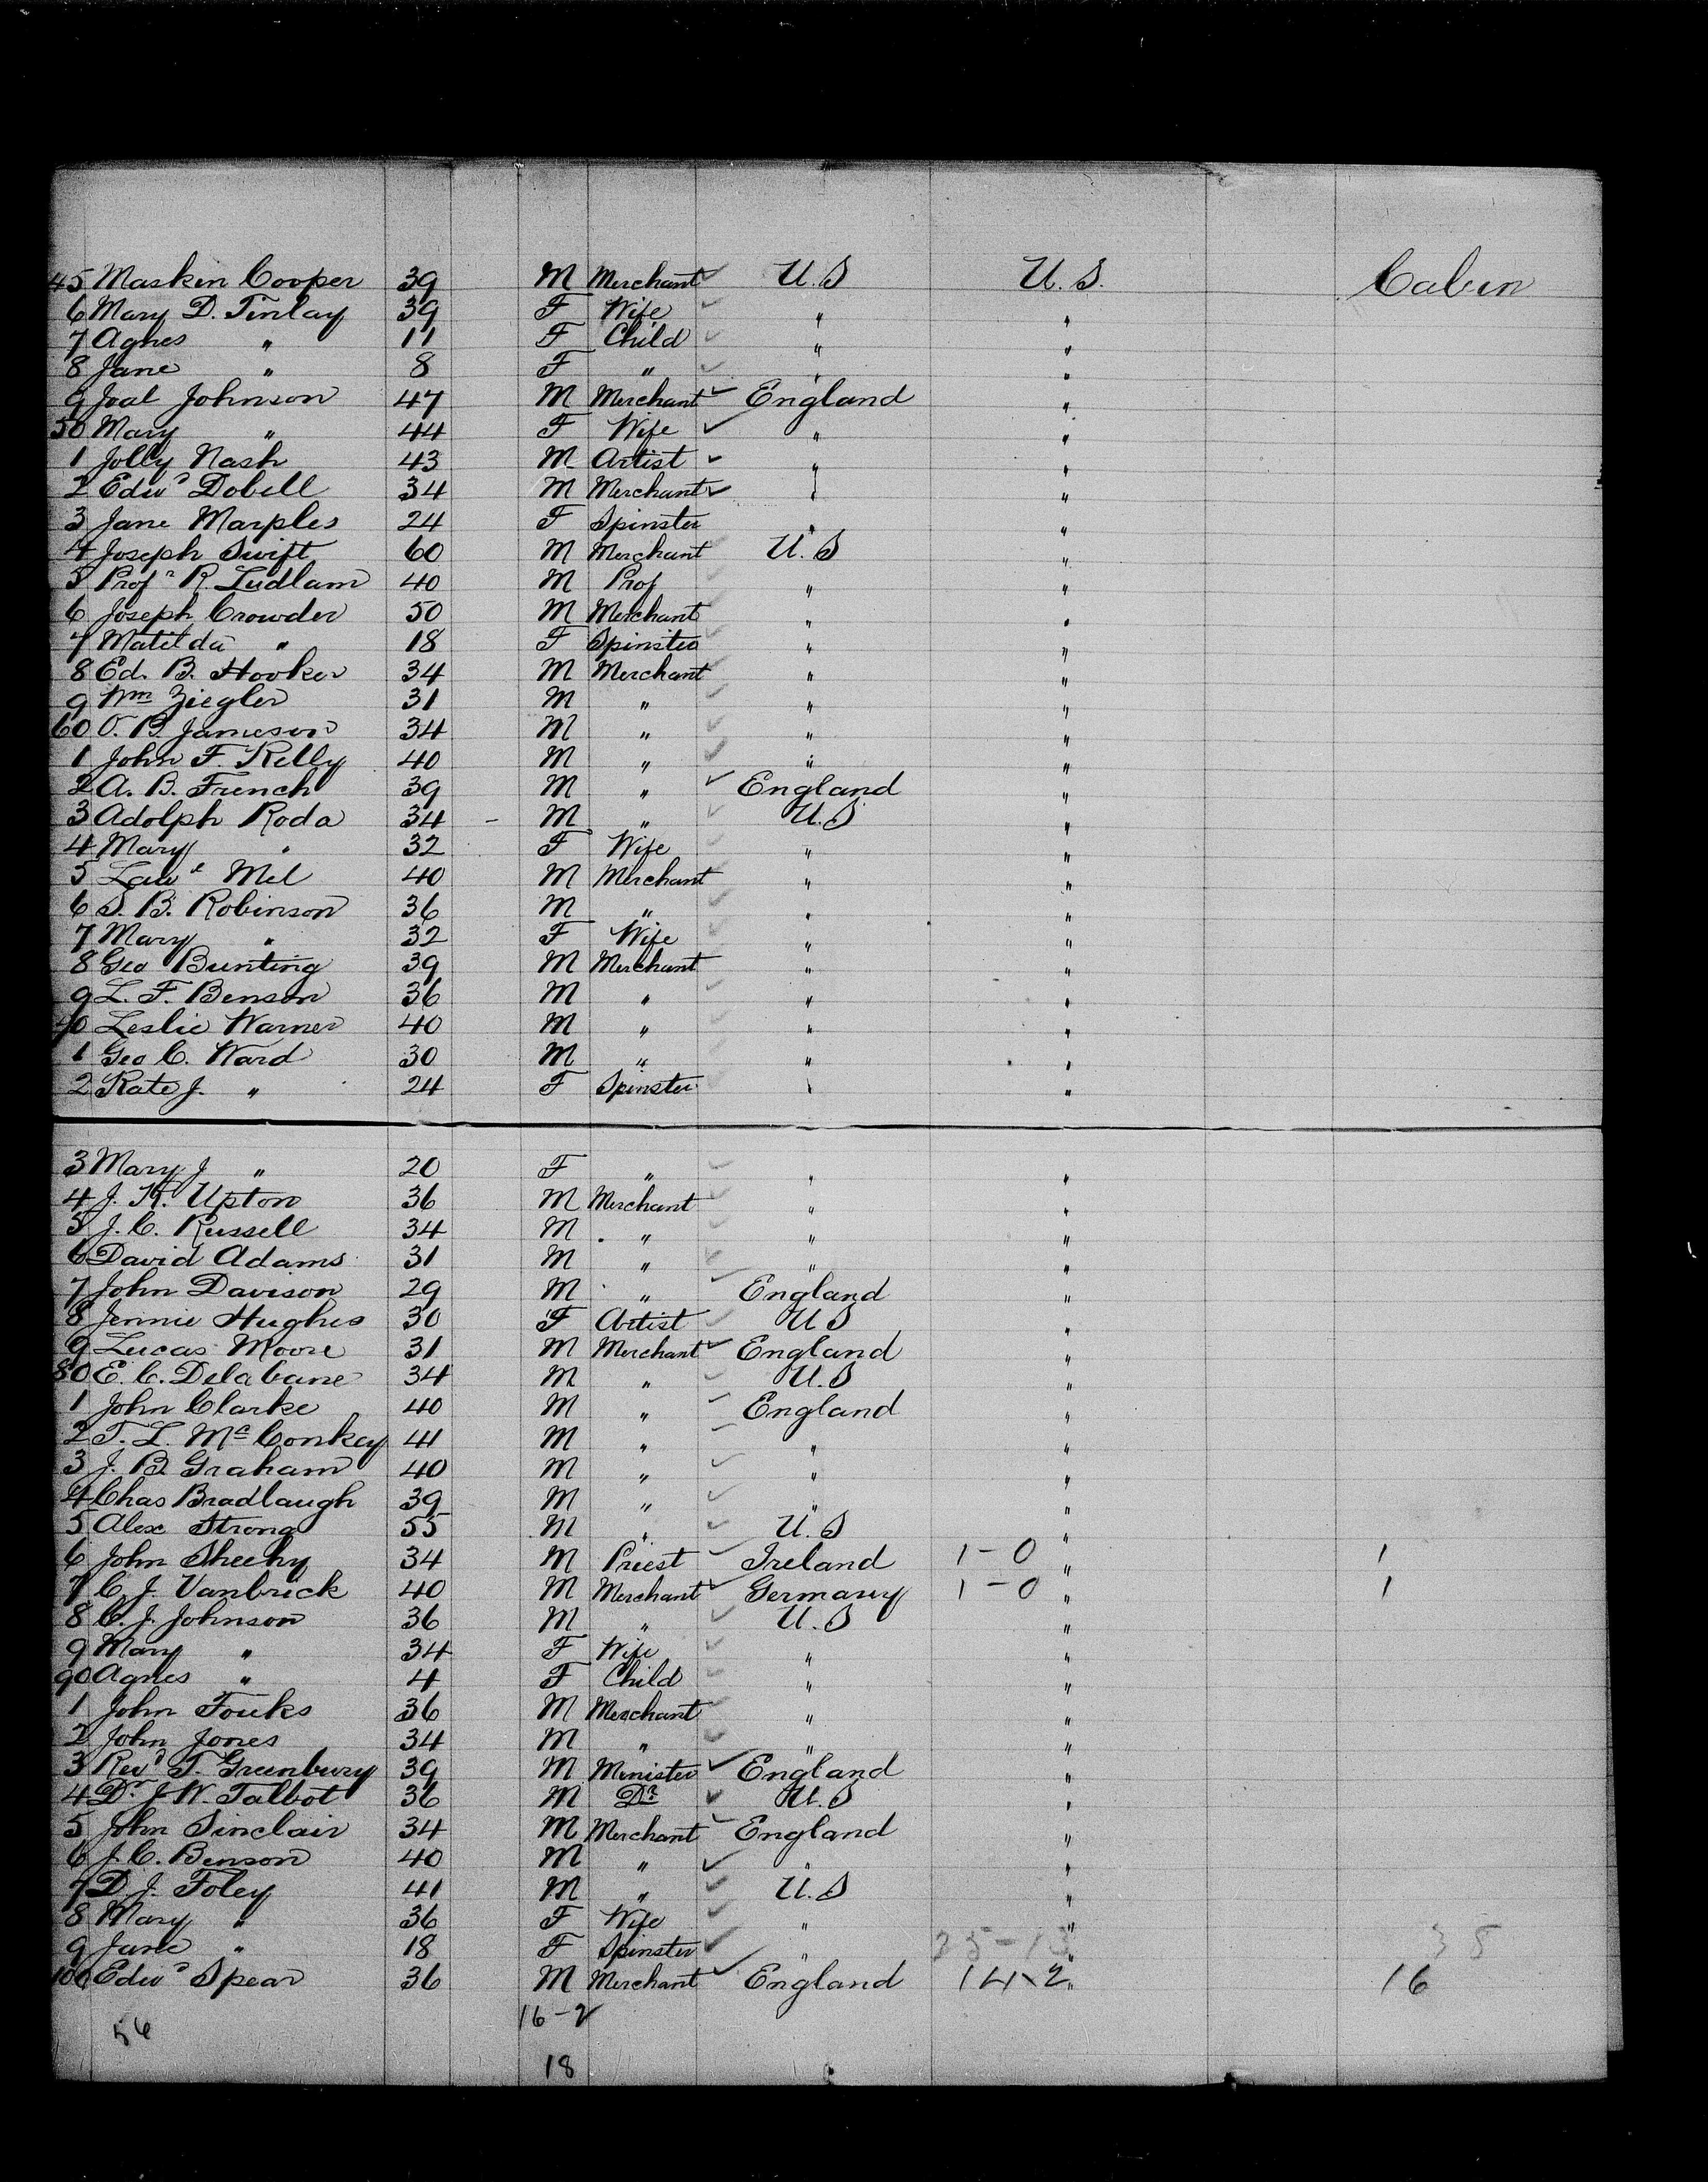 45 Maskin Cooper 39 M Merchant U.S U.S. Cabin
6 Mary D. Finlay 39 F Wife " "
7 Agnes " 11 F Child " "
8 Jane " 8 F " " "
9 Joal Johnson 47 M Merchant England "
50 Mary " 44 F Wife " "
1 Jolly Nash 43 M Artist " "
2 Edwd Dobell 34 M Merchant " "
3 Jane Marples 24 F Spinster " "
4 Joseph Swift 60 M Merchant U.S "
5 Profr R. Ludlam 40 M Prof " "
6 Joseph Crowder 50 M Merchant " "
7 Matilda " 18 F Spinster " "
8 Ed. B. Hooker 34 M Merchant " "
9 Wm Ziegler 31 M " " "
60 O. B. Jameson 34 M " " "
1 John F. Kelly 40 M " " "
2 A. B. French 39 M " England "
3 Adolph Roda 34 - M " U.S "
4 Mary " 32 F Wife " "
5 Mel 40 M Merchant " "
6 S. B. Robinson 36 M " " "
7 Mary " 32 F Wife " "
8 Geo Bunting 39 M Merchant " "
9 L. F. Benson 36 M " " "
70 Leslie Warner 40 M " " "
1 Geo C. Ward 30 M " " "
2 Kate J. " 24 F Spinster " "
3 Mary J " 20 F " " "
4 J. K. Upton 36 M Merchant " "
5 J. C. Russell 34 M " " "
6 David Adams 31 M " " "
7 John Davison 29 M " England "
8 Jennie Hughes 30 F Artist U S "
9 Lucas Moore 31 M Merchant England "
80 E. C. Delabane 34 M " U.S "
1 John Clarke 40 M " England "
2 T. L. McConkey 41 M " " "
3 J. B. Graham 40 M " " "
4 Chas Bradlaugh 39 M " " "
5 Alex Strong 55 M " U.S "
6 John Sheehy 34 M Priest Ireland 1-0 " 1
7 C. J. Vanbrick 40 M Merchant Germany 1-0 " 1
8 C. J. Johnson 36 M " U.S "
9 Mary " 34 F Wife " "
90 Agnes " 4 F Child " "
1 John Fouks 36 M Merchant " "
2 John Jones 34 M " " "
3 Revd T. Greenbury 39 M Minister England "
4 Dr J. W. Talbot 36 M Dr U.S "
5 John Sinclair 34 M Merchant England "
6 J. C. Benson 40 M " " "
7 D. J. Foley 41 M " U.S "
8 Mary " 36 F Wife " "
9 Jane " 18 F Spinster " "
100 Edwd Spear 36 M Merchant England 14-2 " 16
16-2
56
18